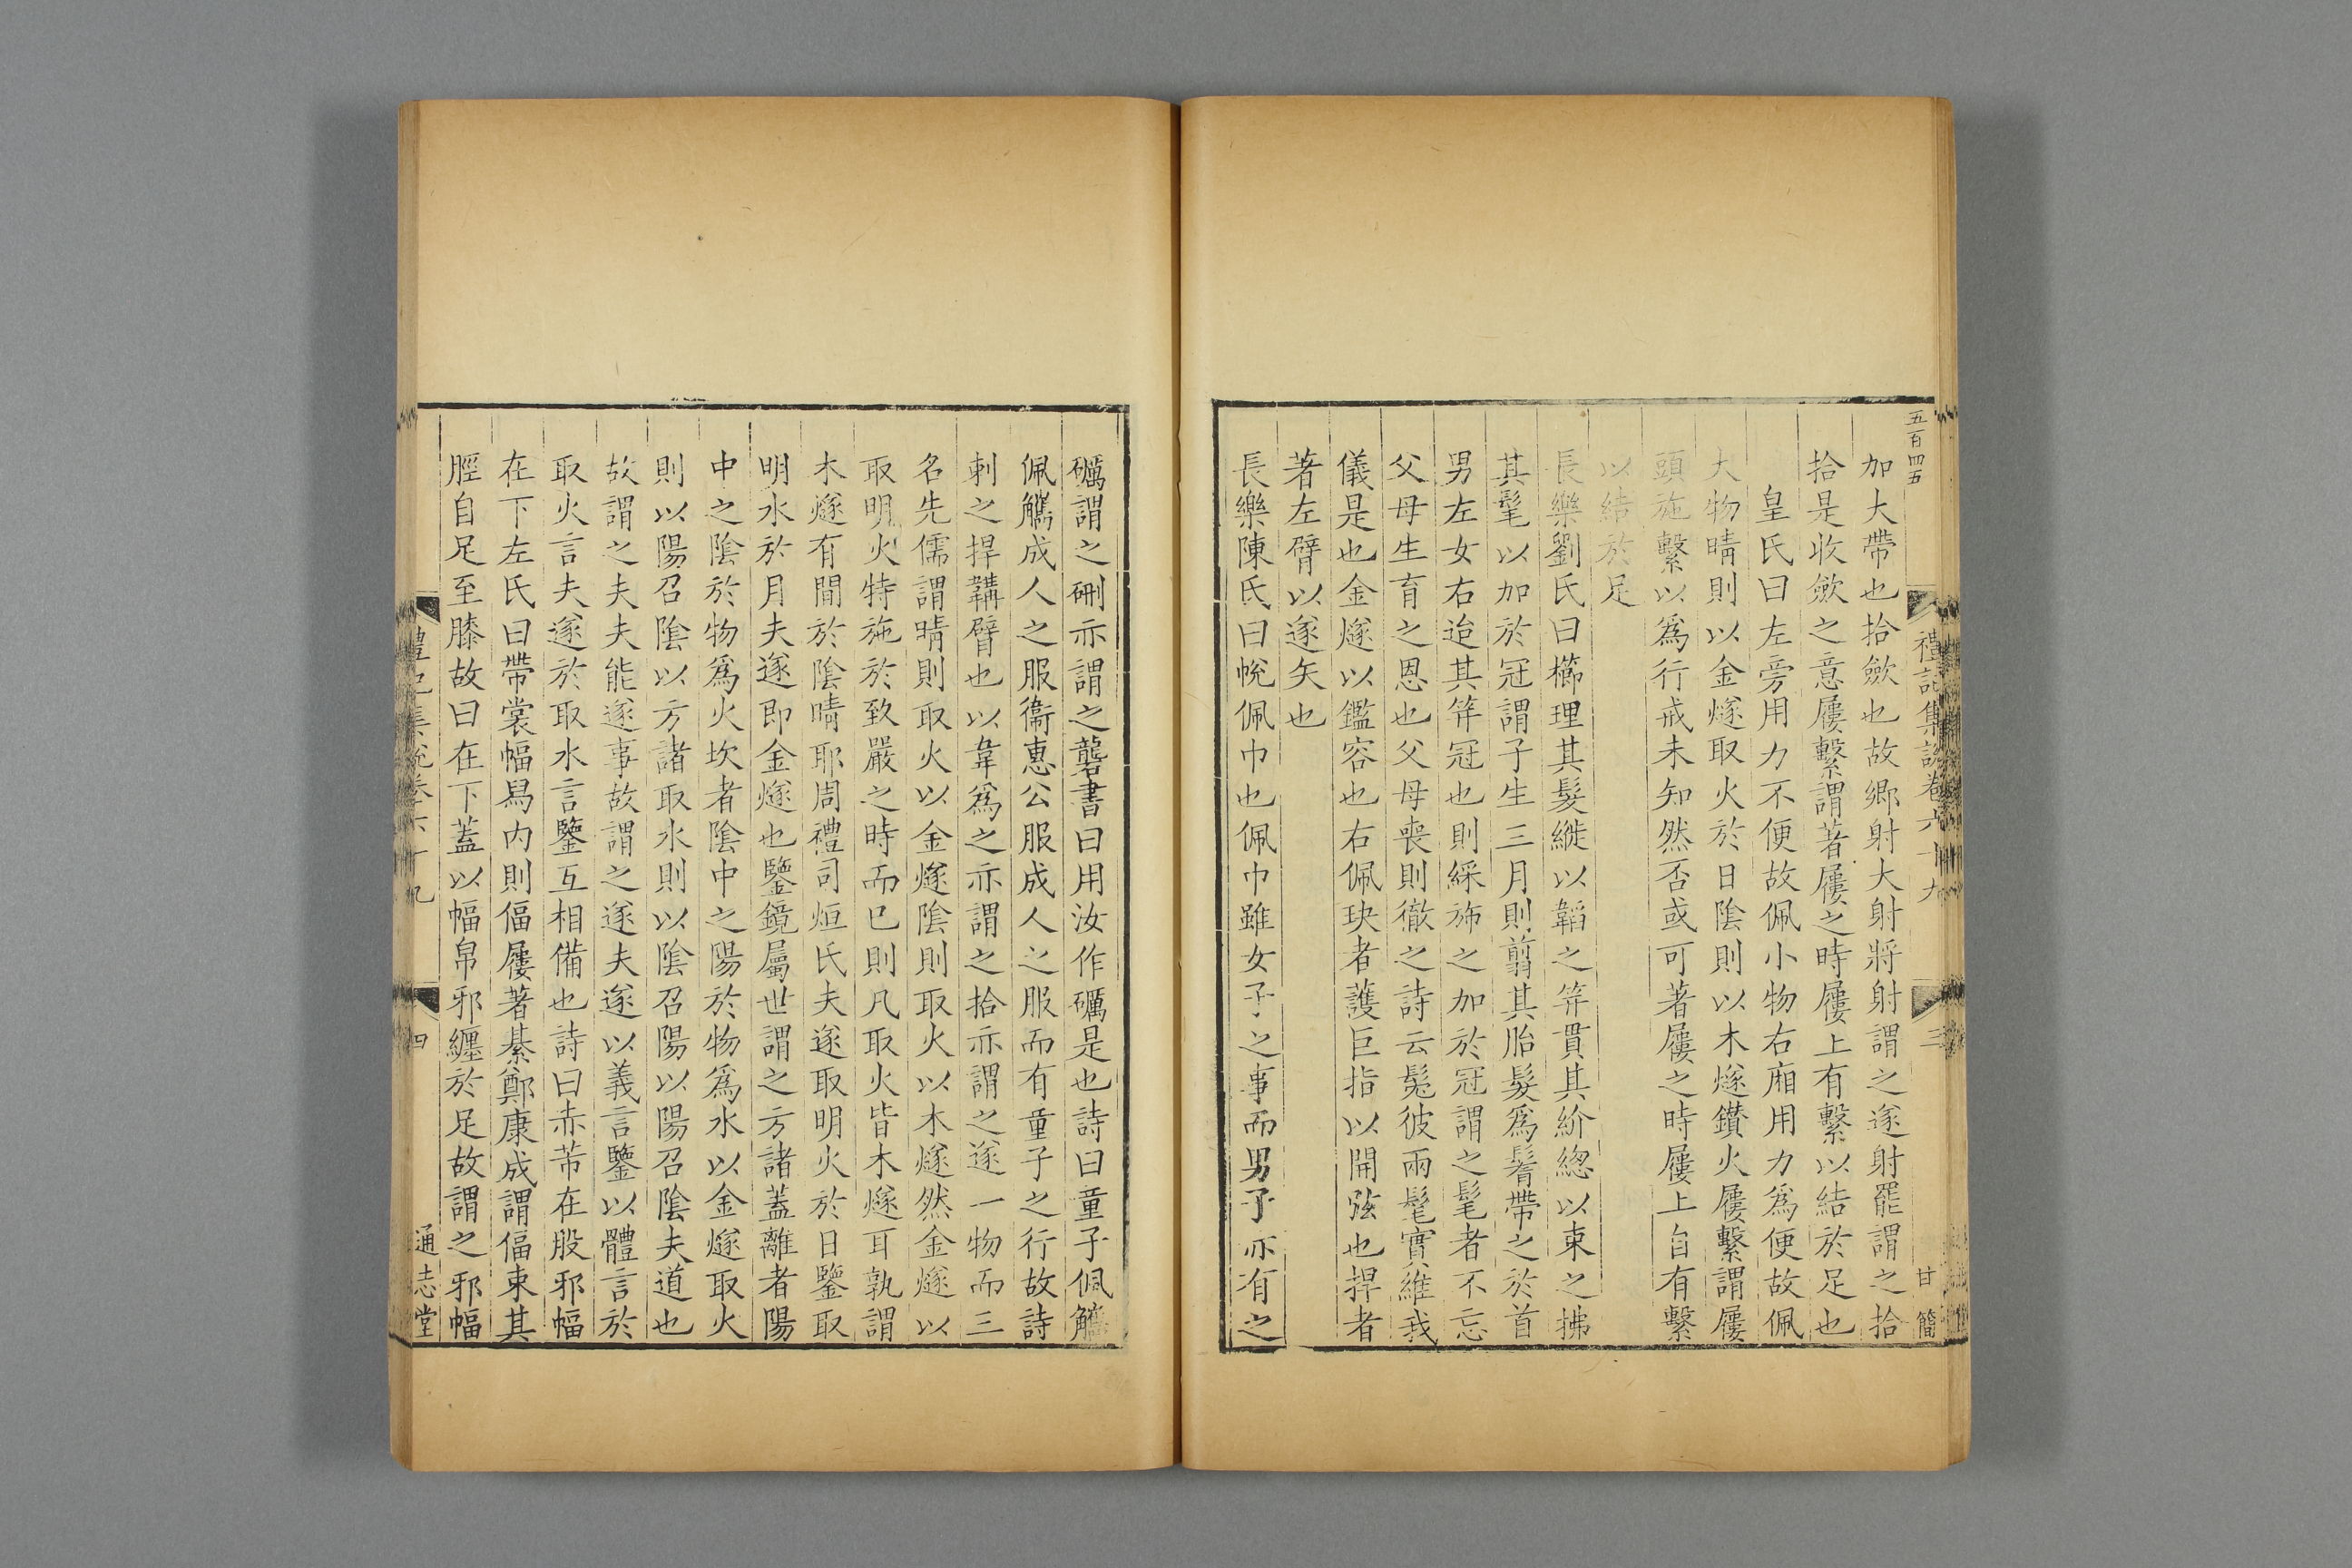 五百四五
禮記集說卷六十九
三
甘簡
加大帶也拾斂也故鄉射大射將射謂之遂射罷謂之拾
拾是收斂之意屨繫謂著屨之時屨上有繫以結於足也
皇氏曰左旁用力不便故佩小物右廂用力爲便故佩
大物晴則以金燧取火於日陰則以木燧鑽火屨繫謂屨
頭施繫以爲行戒未知然否或可著屨之時屨上自有繫
以結於足
長樂劉氏曰櫛理其髮縰以韜之筓貫其紒緫以束之拂
其髦以加於冠謂子生三月則翦其胎髮爲鬌帶之於首
男左女右迨其筓冠也則綵斾之加於冠謂之髦者不忘
父母生育之恩也父母喪則徹之詩云髧彼兩髦實維我
儀是也金燧以鑑容也右佩玦者䕶巨指以開弦也捍者
著左臂以遂矢也
長樂陳氏曰帨佩巾也佩巾雖女子之事而男子亦有之
礪謂之硎亦謂之礱書曰用汝作礪是也詩曰童子佩觿
佩觿成人之服衞惠公服成人之服而有童子之行故詩
刺之捍韝臂也以韋爲之亦謂之拾亦謂之遂一物而三
名先儒謂晴則取火以金燧陰則取火以木燧然金燧以
取明火特施於致嚴之時而已則凡取火皆木燧耳孰謂
木燧有間於陰晴耶周禮司烜氏夫遂取明火於日鑒取
明水於月夫遂即金燧也鑒鏡屬世謂之方諸蓋離者陽
中之陰於物爲火坎者陰中之陽於物爲水以金燧取火
則以陽召陰以方諸取水則以陰召陽以陽召陰夫道也
故謂之夫夫能遂事故謂之遂夫遂以義言鑒以體言於
取火言夫遂於取水言鑒互相備也詩曰赤芾在股邪幅
在下左氏曰帶裳幅舄內則偪屨著綦鄭康成謂偪束其
脛自足至膝故曰在下蓋以幅帛邪纏於足故謂之邪幅
禮記集說卷六十九
四
通志堂